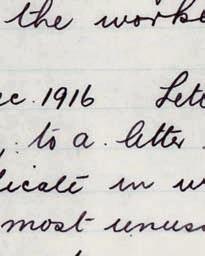 the worke
ec. 1916 Lett
, to a letter
dicate in w
most unuss